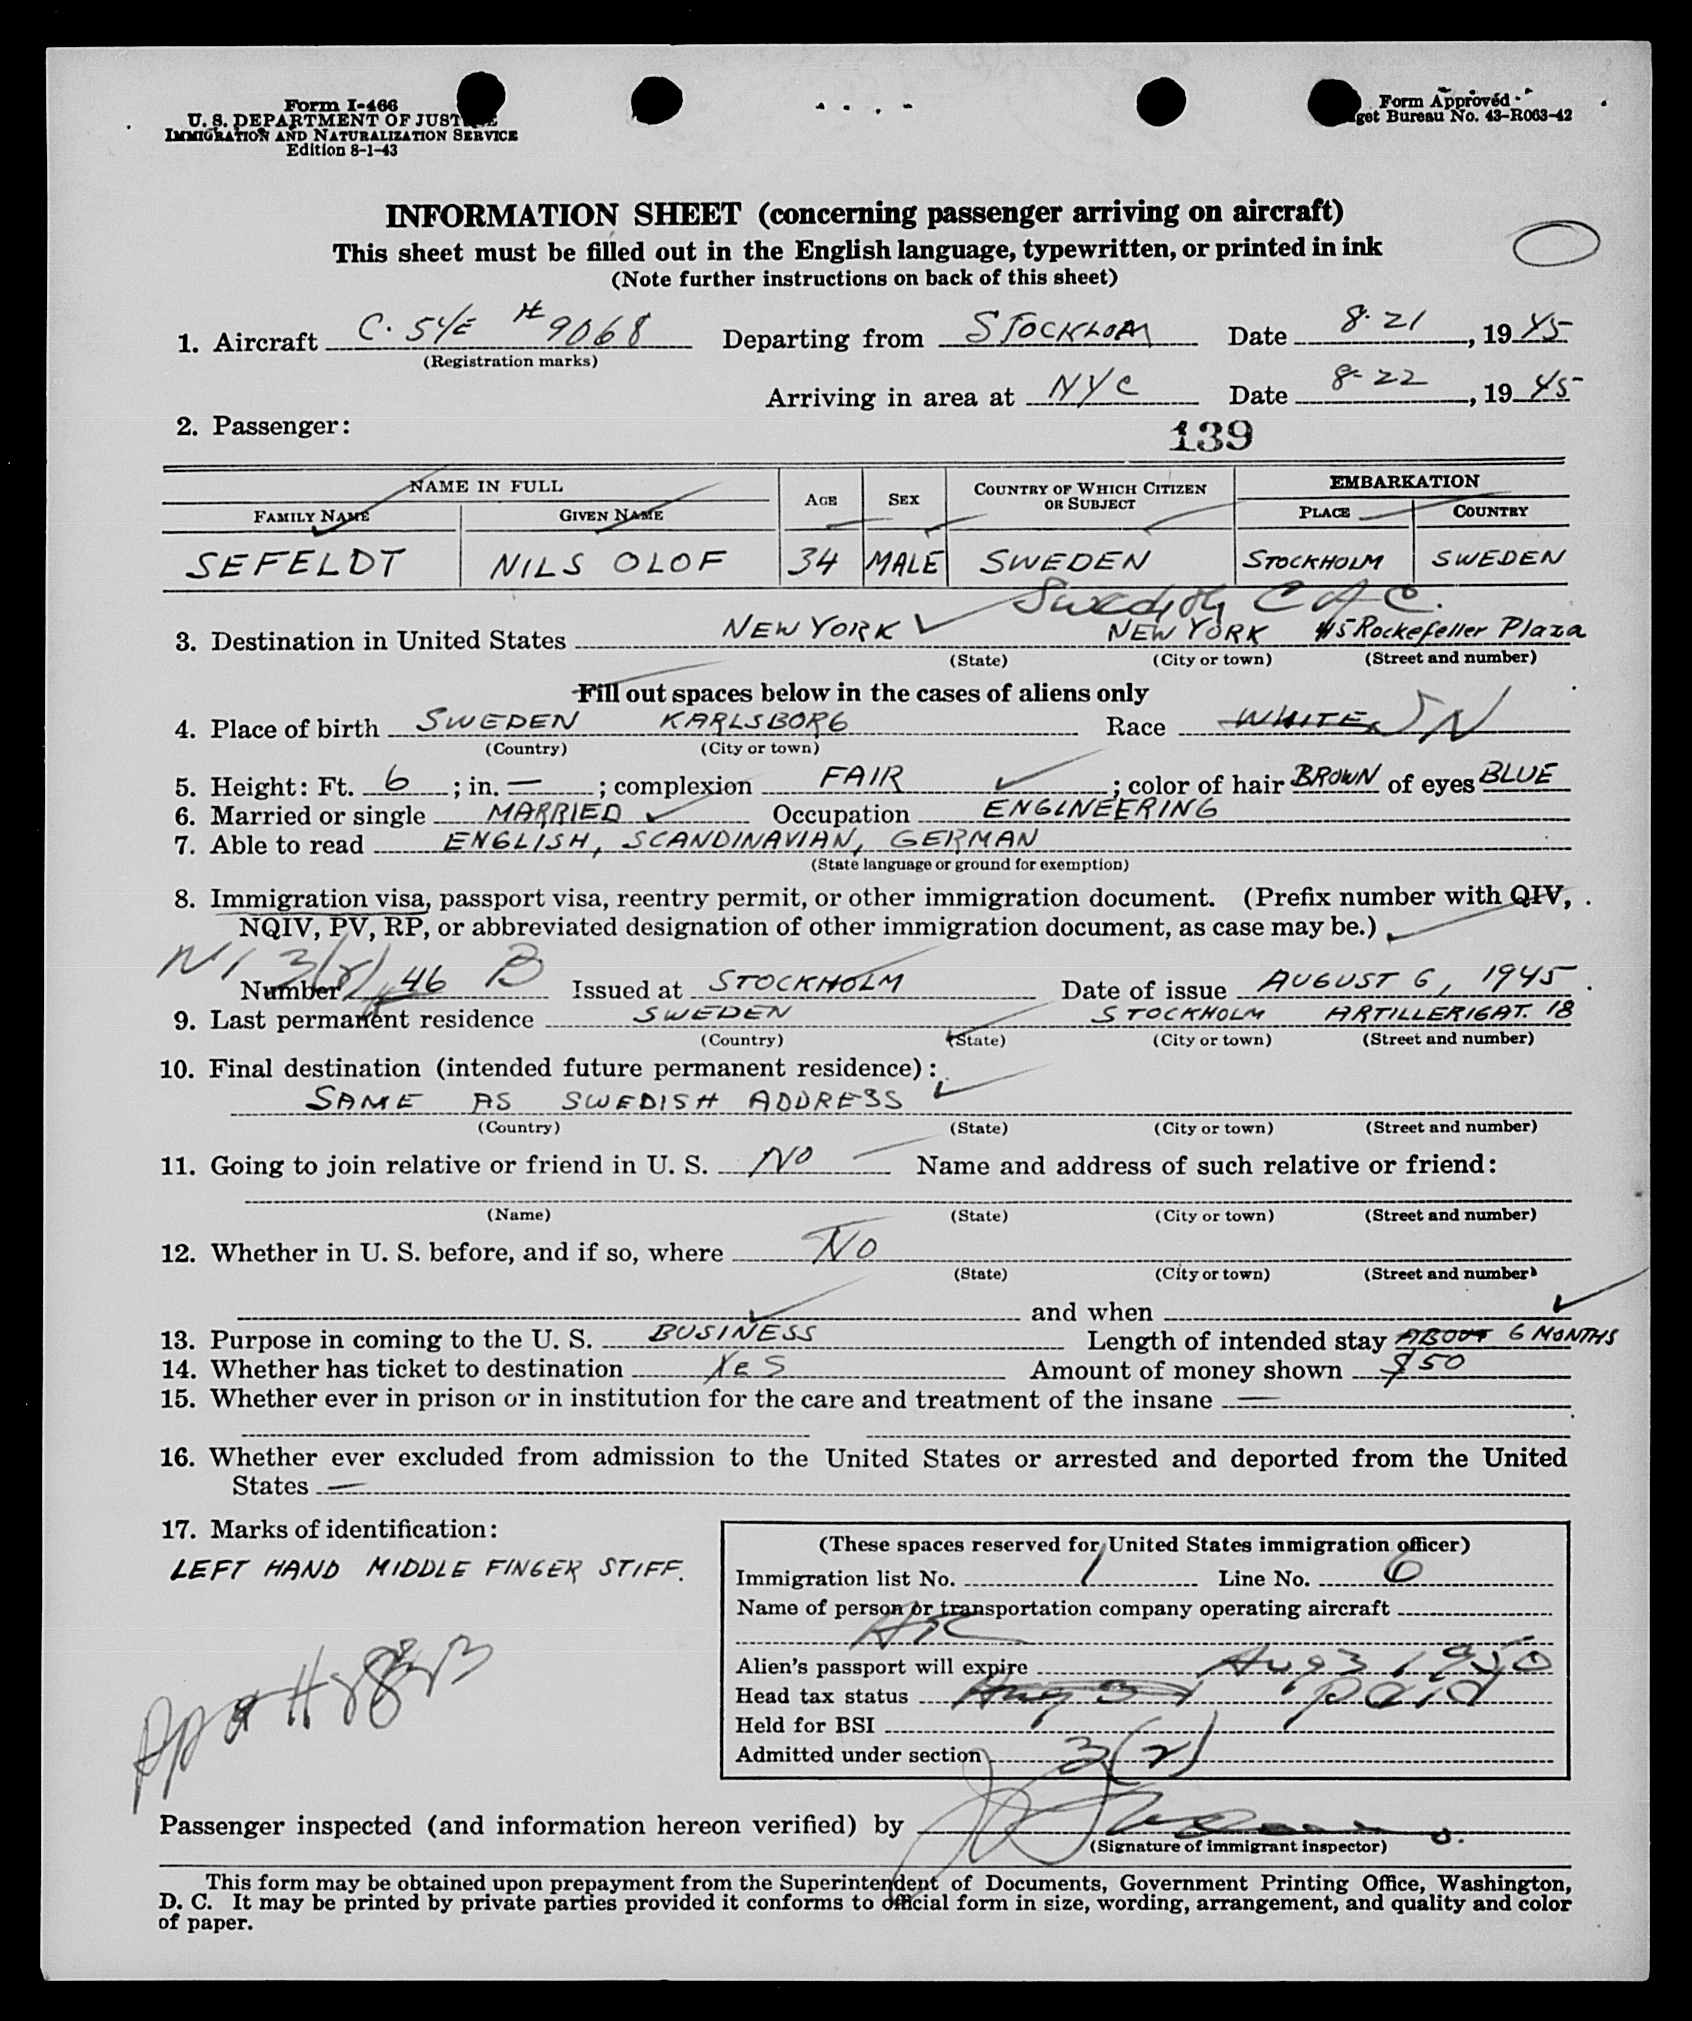 Form I-466
U. S. DEPARTMENT OF JUST
IMMIGRATION AND NATURALIZATION SERVICE
Edition 8-1-43
Form Approved
get Bureau No. 43-R063-42
INFORMATION SHEET (concerning passenger arriving on aircraft)
This sheet must be filled out in the English language, typewritten, or printed in ink
(Note further instructions on back of this sheet)
1. Aircraft C-54E #9068 Departing from STOCKHOLM Date 8-21, 1945
(Registration marks)
Arriving in area at NYC Date 8-22, 1945
2. Passenger: 139
NAME IN FULL AGE SEX COUNTRY OF WHICH CITIZEN OR SUBJECT EMBARKATION
FAMILY NAME GIVEN NAME PLACE COUNTRY
SEFELDT NILS OLOF 34 MALE SWEDEN STOCKHOLM SWEDEN
Swedish C A C.
3. Destination in United States NEW YORK NEW YORK #5 Rockefeller Plaza
(State) (City or town) (Street and number)
Fill out spaces below in the cases of aliens only
4. Place of birth SWEDEN KARLSBORG Race WHITE
(Country) (City or town)
5. Height: Ft. 6; in. —; complexion FAIR; color of hair BROWN of eyes BLUE
6. Married or single MARRIED Occupation ENGINEERING
7. Able to read ENGLISH, SCANDINAVIAN, GERMAN
(State language or ground for exemption)
8. Immigration visa, passport visa, reentry permit, or other immigration document. (Prefix number with QIV,
NQIV, PV, RP, or abbreviated designation of other immigration document, as case may be.)
Number 46 B Issued at STOCKHOLM Date of issue AUGUST 6, 1945
9. Last permanent residence SWEDEN STOCKHOLM ARTILLERIGAT. 18
(Country) (State) (City or town) (Street and number)
10. Final destination (intended future permanent residence):
SAME AS SWEDISH ADDRESS
(Country) (State) (City or town) (Street and number)
11. Going to join relative or friend in U. S. NO Name and address of such relative or friend:
(Name) (State) (City or town) (Street and number)
12. Whether in U. S. before, and if so, where NO
(State) (City or town) (Street and number)
and when
13. Purpose in coming to the U. S. BUSINESS Length of intended stay ABOUT 6 MONTHS
14. Whether has ticket to destination YES Amount of money shown $50
15. Whether ever in prison or in institution for the care and treatment of the insane —
16. Whether ever excluded from admission to the United States or arrested and deported from the United
States —
17. Marks of identification:
LEFT HAND MIDDLE FINGER STIFF.
(These spaces reserved for United States immigration officer)
Immigration list No. 1 Line No. 6
Name of person or transportation company operating aircraft
Alien's passport will expire Aug 3, 1950
Head tax status paid
Held for BSI
Admitted under section 3(2)
Passenger inspected (and information hereon verified) by
(Signature of immigrant inspector)
This form may be obtained upon prepayment from the Superintendent of Documents, Government Printing Office, Washington,
D. C. It may be printed by private parties provided it conforms to official form in size, wording, arrangement, and quality and color
of paper.